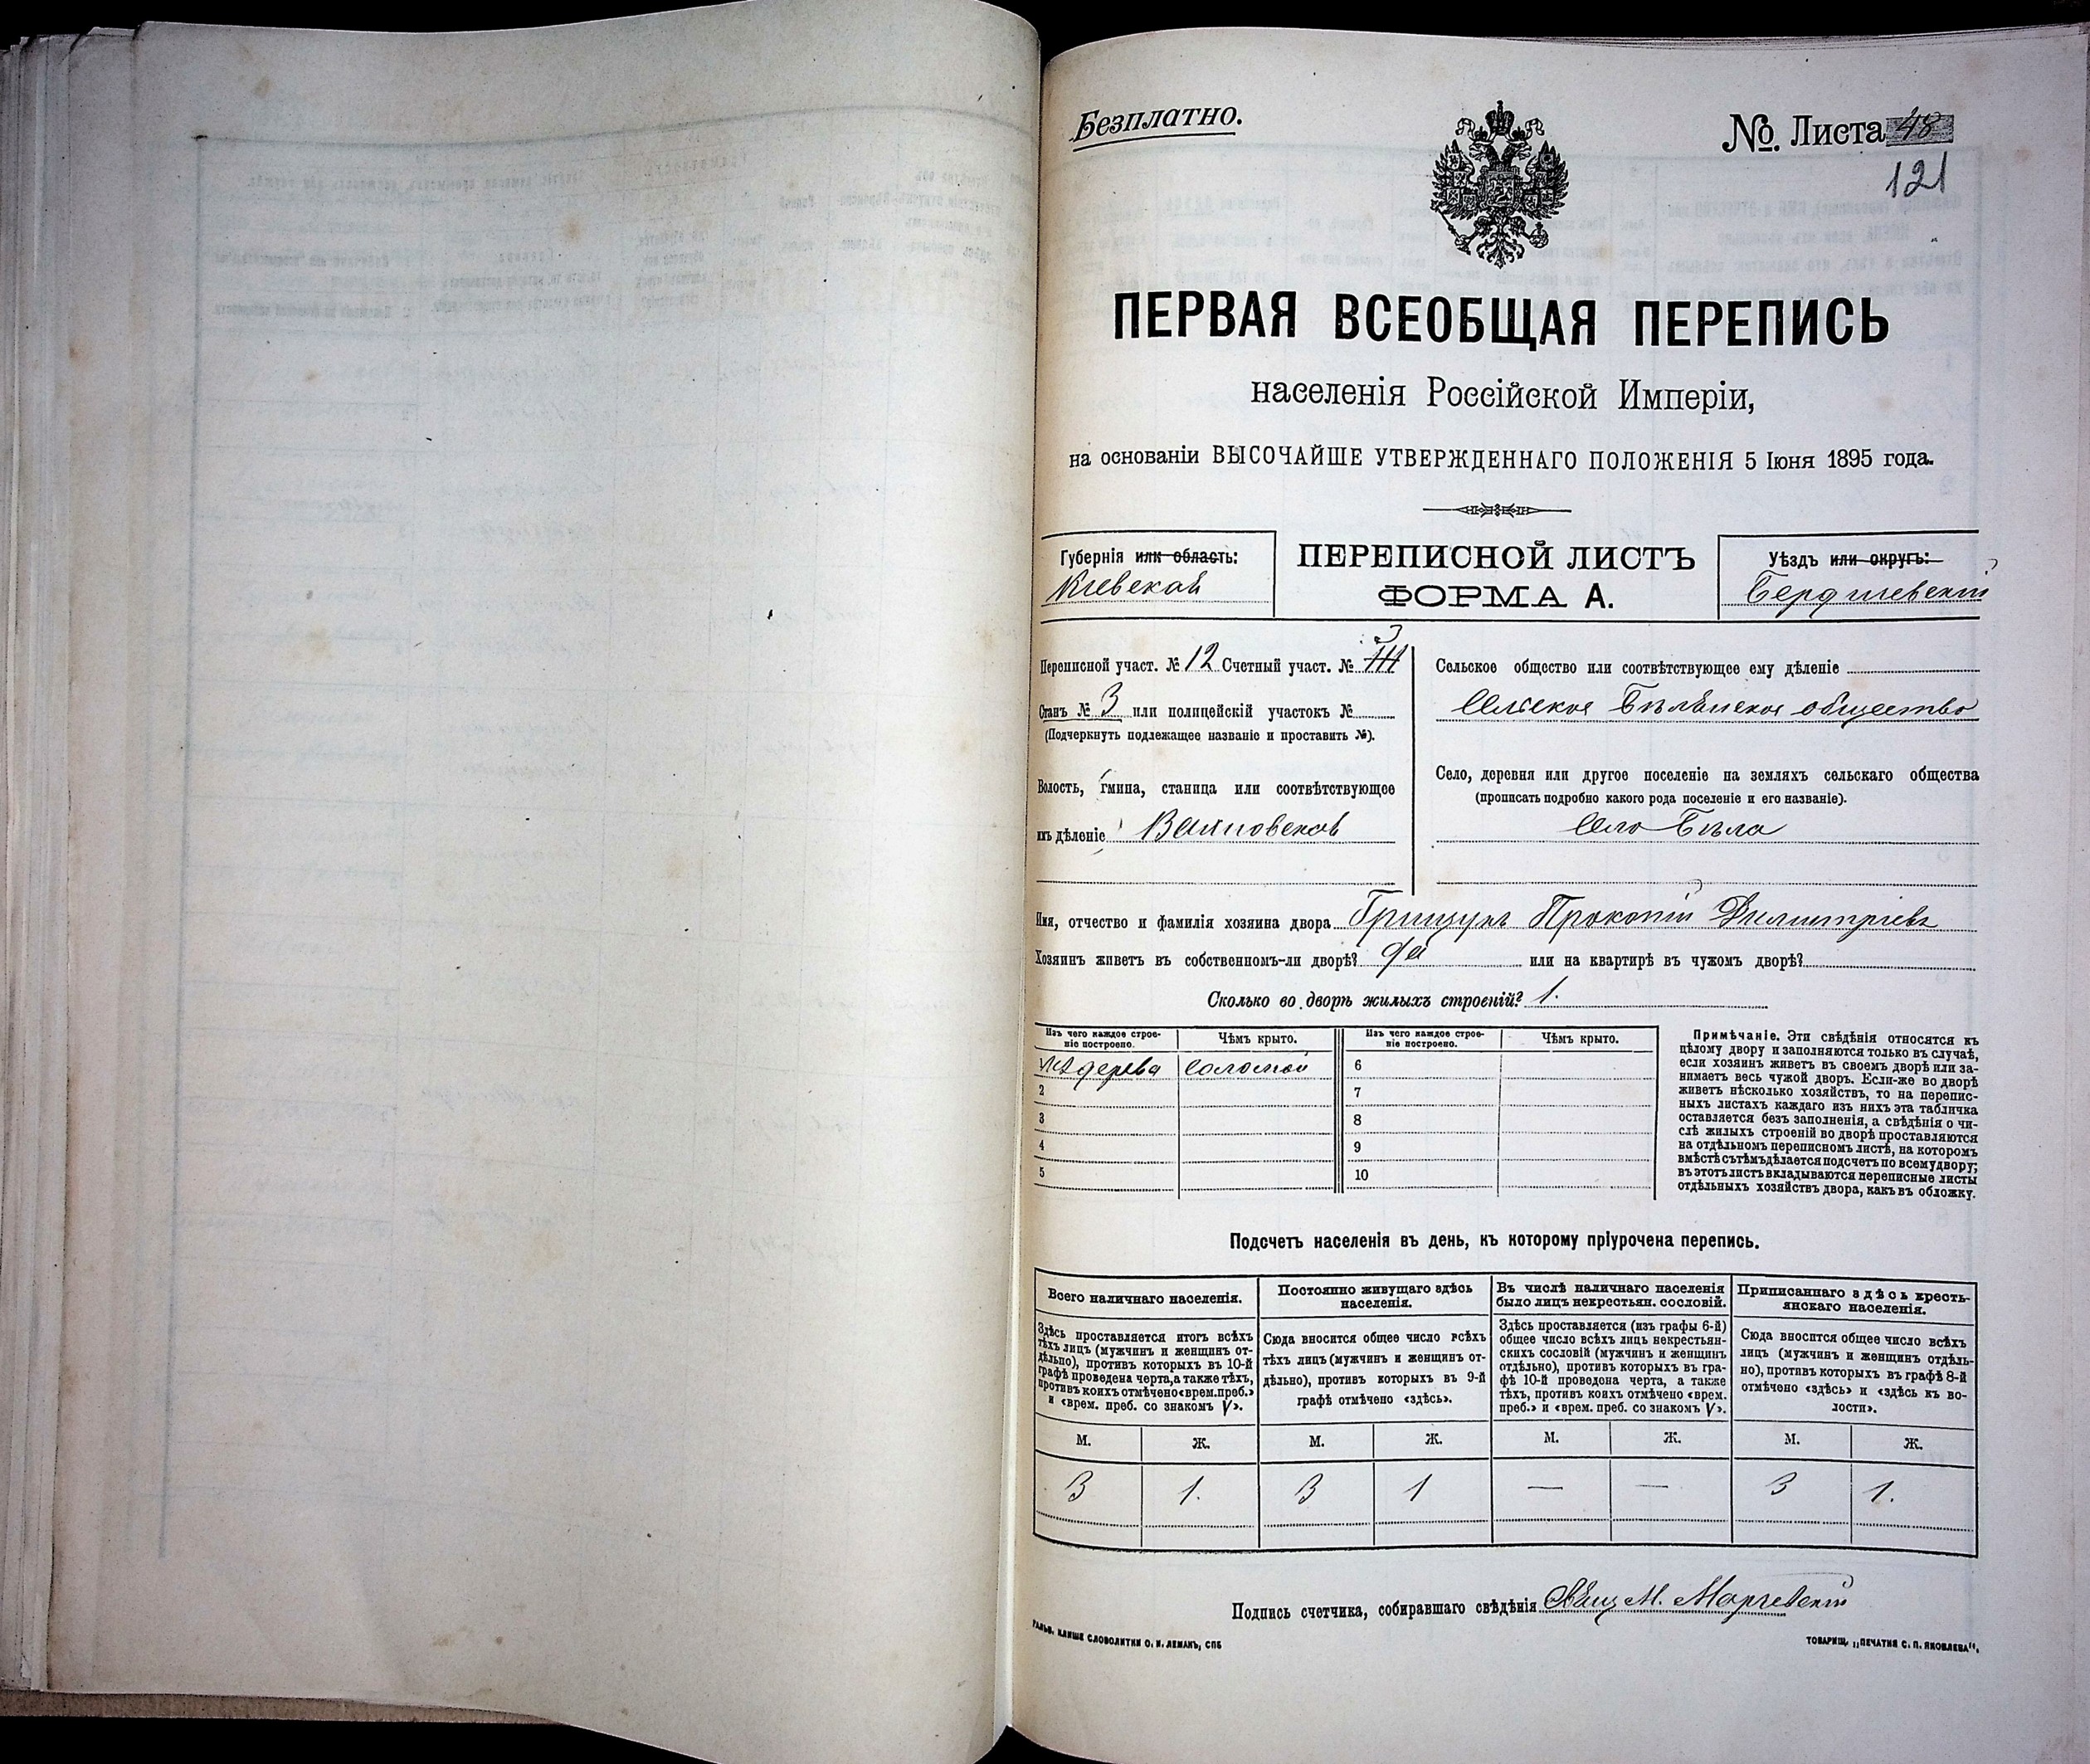 Безплатно.
№. Листа 48
121
ПЕРВАЯ ВСЕОБЩАЯ ПЕРЕПИСЬ
населенія Россійской Имперіи,
на основаніи ВЫСОЧАЙШЕ УТВЕРЖДЕННАГО ПОЛОЖЕНІЯ 5 Іюня 1895 года.
Губернія или область:
Кіевской
ПЕРЕПИСНОЙ ЛИСТЪ
ФОРМА А.
Уѣздъ или округъ:
Бердичевскій
Переписной участ. № 12 Счетный участ. № III 3
Станъ № 3 или полицейскій участокъ №
(Подчеркнуть подлежащее названіе и проставить №).
Волость, гмина, станица или соотвѣтствующее
имъ дѣленіе
Сельское общество или соотвѣтствующее ему дѣленіе
общество
Село, деревня или другое поселеніе на земляхъ сельскаго общества
(прописать подробно какого рода поселеніе и его названіе).
Село Бѣла
Имя, отчество и фамилія хозяина двора Грищукъ Прокопій Димитріевъ
Хозяинъ живетъ въ собственномъ-ли дворѣ? да или на квартирѣ въ чужомъ дворѣ?
Сколько во дворѣ жилыхъ строеній? 1.
Изъ чего каждое строе-
ніе построено.
Чѣмъ крыто.
Изъ чего каждое строе-
ніе построено.
Чѣмъ крыто.
Изъ дерева соломой 6
2 7
3 8
4 9
5 10
Примѣчаніе. Эти свѣдѣнія относятся къ
цѣлому двору и заполняются только въ случаѣ,
если хозяинъ живетъ въ своемъ дворѣ или за-
нимаетъ весь чужой дворъ. Если-же во дворѣ
живетъ нѣсколько хозяйствъ, то на перепис-
ныхъ листахъ каждаго изъ нихъ эта табличка
оставляется безъ заполненія, а свѣдѣнія о чи-
слѣ жилыхъ строеній во дворѣ проставляются
на отдѣльномъ переписномъ листѣ, на которомъ
вмѣстѣ съ тѣмъ дѣлается подсчетъ по всему двору;
въ этотъ листъ вкладываются переписные листы
отдѣльныхъ хозяйствъ двора, какъ въ обложку.
Подсчетъ населенія въ день, къ которому пріурочена перепись.
Всего наличнаго населенія.
Здѣсь проставляется итогъ всѣхъ
тѣхъ лицъ (мужчинъ и женщинъ от-
дѣльно), противъ которыхъ въ 10-й
графѣ проведена черта, а также тѣхъ,
противъ коихъ отмѣчено «врем. преб.»
и «врем. преб. со знакомъ V».
Постоянно живущаго здѣсь
населенія.
Сюда вносится общее число всѣхъ
тѣхъ лицъ (мужчинъ и женщинъ от-
дѣльно), противъ которыхъ въ 9-й
графѣ отмѣчено «здѣсь».
Въ числѣ наличнаго населенія
было лицъ некрестьян. сословій.
Здѣсь проставляется (изъ графы 6-й)
общее число всѣхъ лицъ некрестьян-
скихъ сословій (мужчинъ и женщинъ
отдѣльно), противъ которыхъ въ гра-
фѣ 10-й проведена черта, а также
тѣхъ, противъ коихъ отмѣчено «врем.
преб.» и «врем. преб. со знакомъ V».
Приписаннаго здѣсь кресть-
янскаго населенія.
Сюда вносится общее число всѣхъ
лицъ (мужчинъ и женщинъ отдѣль-
но), противъ которыхъ въ графѣ 8-й
отмѣчено «здѣсь» и «здѣсь къ во-
лости».
М. Ж. М. Ж. М. Ж. М. Ж.
3 1. 3 1 — — 3 1.
Подпись счетчика, собиравшаго свѣдѣнія
ГАЛЬВ. КЛИШЕ СЛОВОЛИТНИ О. И. ЛЕМАНЪ, СПБ
ТОВАРИЩ. „ПЕЧАТНЯ С. П. ЯКОВЛЕВА".